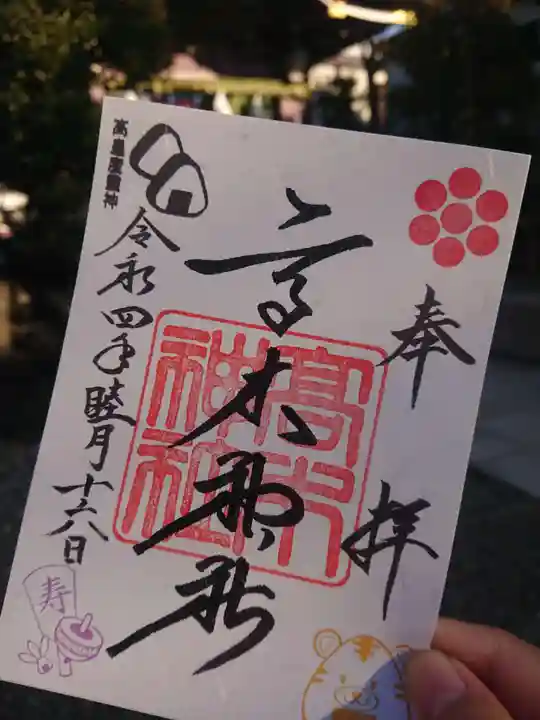 奉拝
高木神社
高木神社
高皇産靈神
令和四年睦月十八日
寿